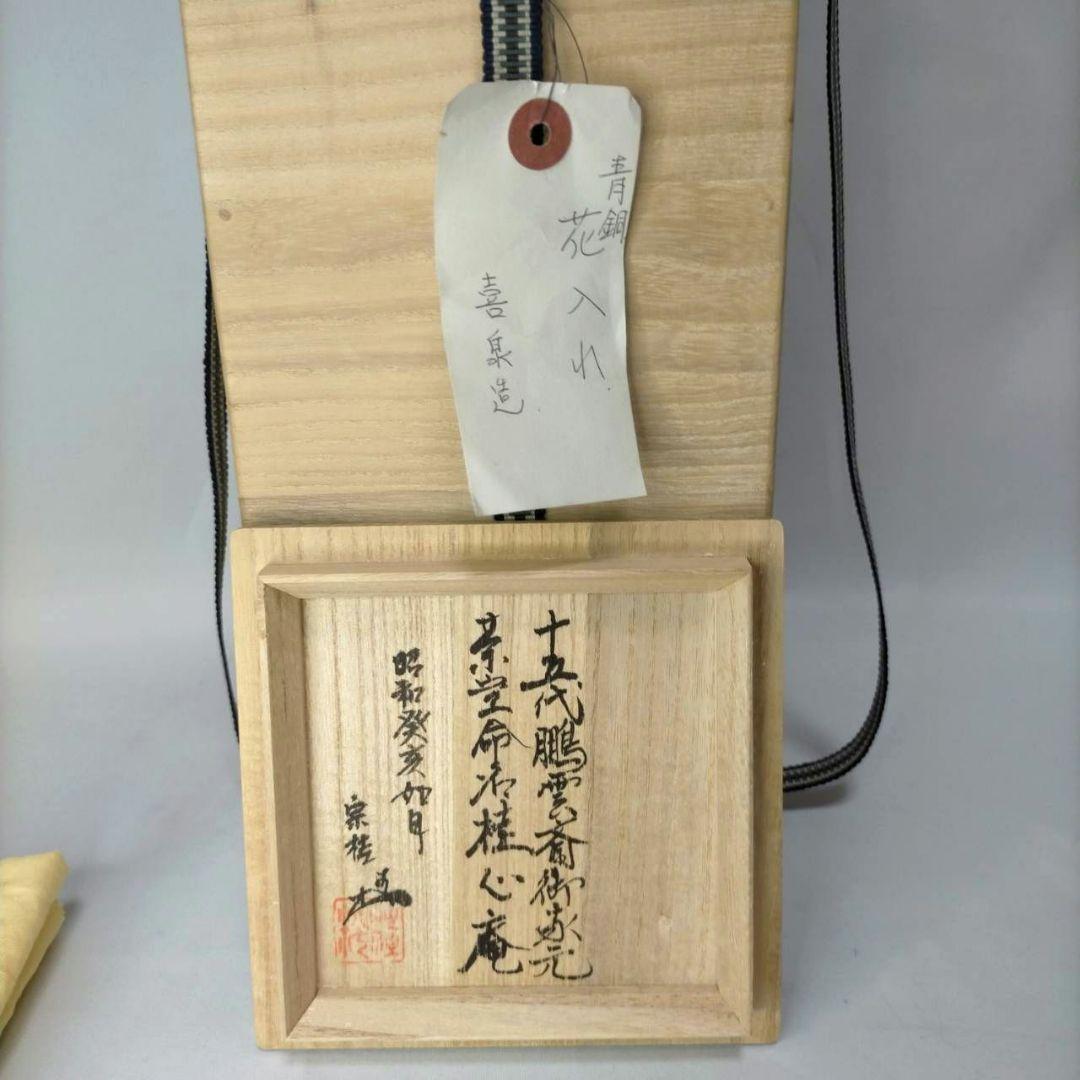 青銅
花入れ
喜泉造
十五代鵬雲斎御家元
茶室命名桂心庵
昭和癸亥如月
宗桂